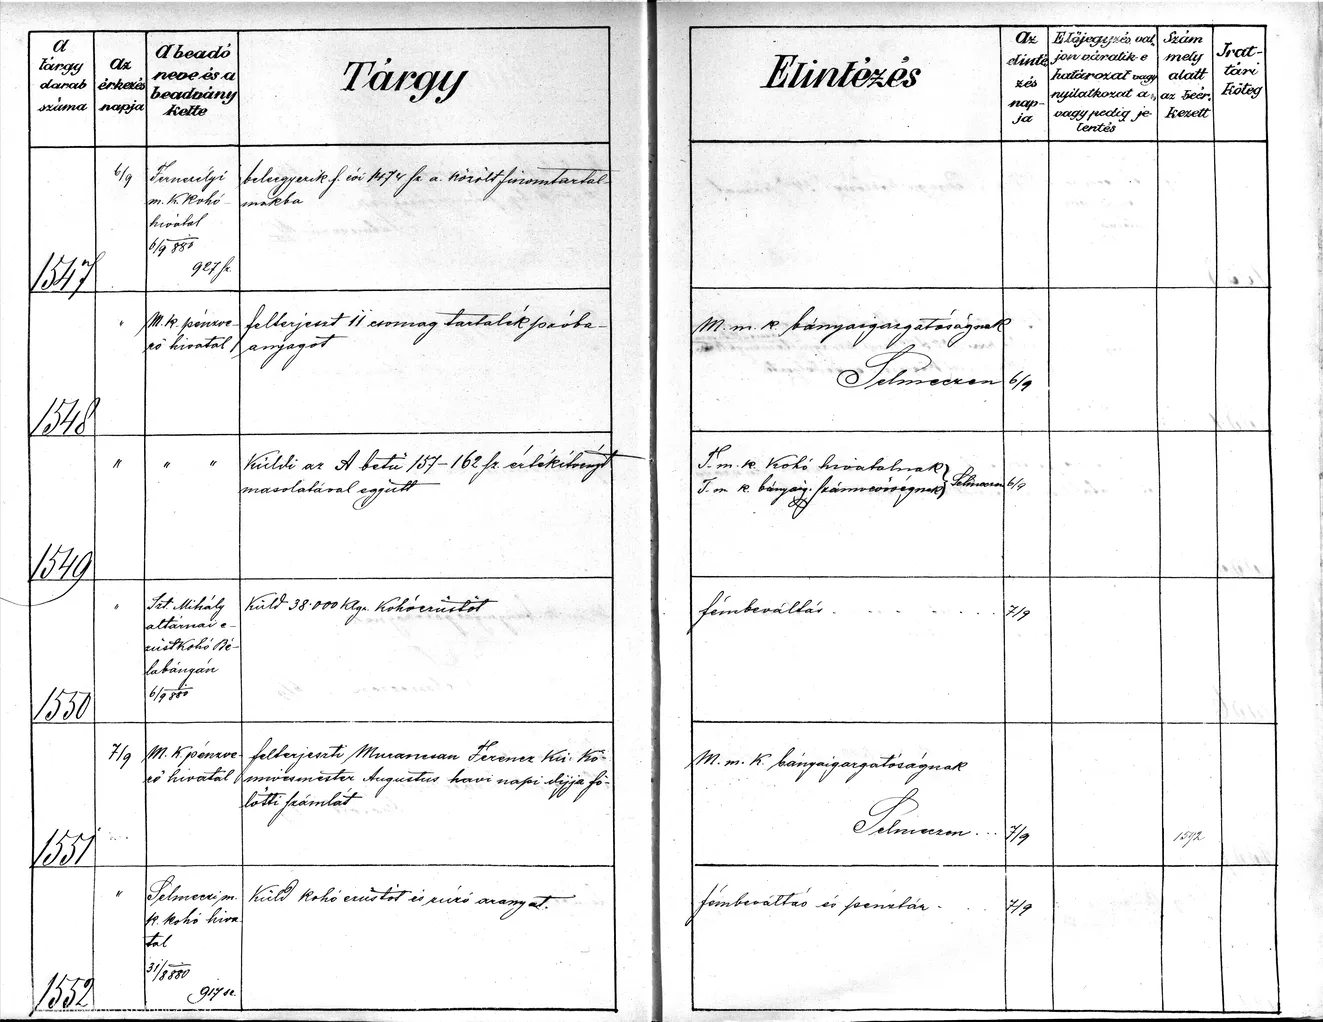 A tárgy darab száma
Az érkezés napja
A beadó neve és a beadvány kelte
Tárgy
Elintézés
Az elintézés napja
Előjegyzés, valjon váratik-e határozat vagy nyilatkozat a;, vagy pedig jelentés
Szám mely alatt az beérkezett
Irattári Köteg
1547
6/9
Fernezelyi
m. k. Kohó-
hivatal
6/9 880
927 sz.
beleegyezik f. évi 1474 sz. a. közölt finomtartal-
makba
1548
"
M. k. pénzve-
rő hivatal
felterjeszt 11 csomag tartalék próba-
anyagot
M. m. k. bányaigazgatóságnak
Selmeczen
6/9
1549
" " "
Küldi az A betű 157–162 sz. értékítvényt
masolatával együtt
T. m. k. Kohó hivatalnak
T. m. k. bányaig. számvevőségnek
Selmeczen
6/9
1550
"
Szt Mihály
altárnai e-
züstkohó Bé-
labányán
6/9 880
Küld 38·000 Klgr. Kohóezüstöt
fémbeváltás
7/9
1551
7/9
M. K pénzve-
rő hivatal
felterjeszti Ferencz Kir. Kő-
művesmester Augustus havi napi díjja fö-
lötti számlát
M. m. K bányaigazgatóságnak
Selmeczen
7/9
1592
1552
"
Selmeczi m.
k. kohó hiva-
tal
31/8 880
917 sz.
Küld kohó ezüstöt és zúzó aranyat.
fémbeváltó és pénztár
7/9